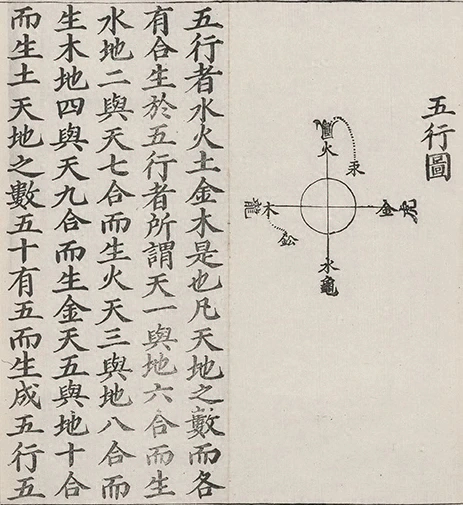 五行圖
火
汞
金虎
木龍
鈆
水龜
五行者水火土金木是也凡天地之數而各
有合生於五行者所謂天一與地六合而生
水地二與天七合而生火天三與地八合而
生木地四與天九合而生金天五與地十合
而生土天地之數五十有五而生成五行五